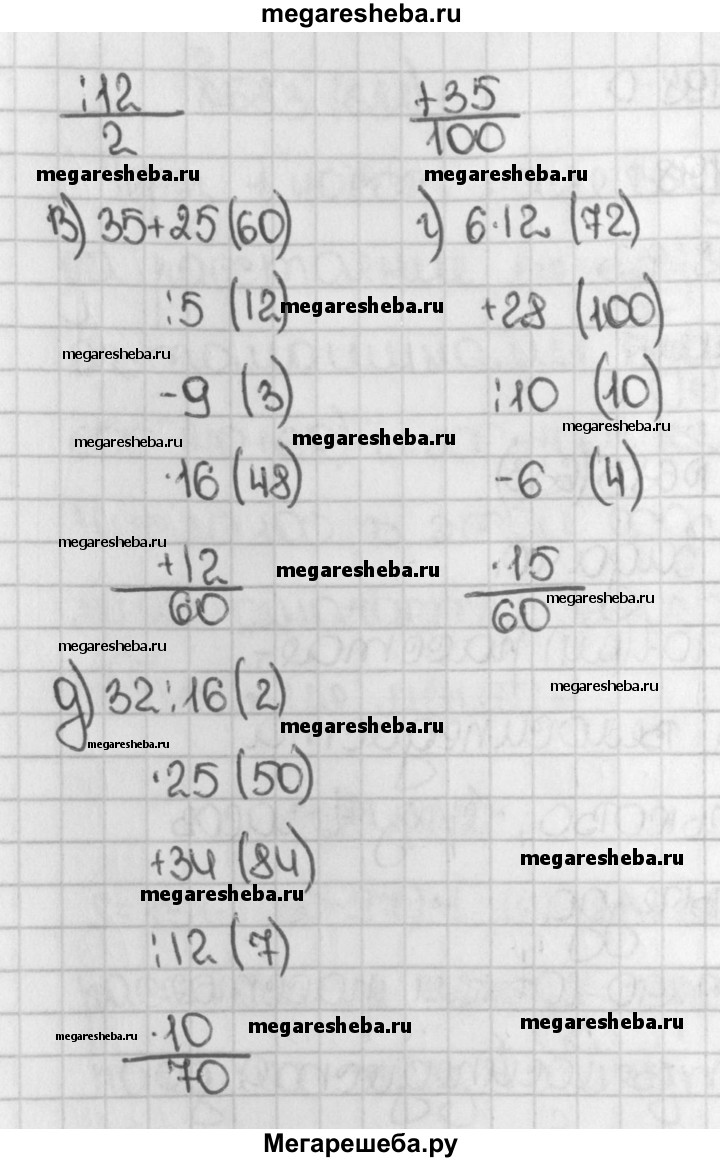 megaresheba.ru
:12
2
+35
100
megaresheba.ru
megaresheba.ru
в) 35+25 (60)
:5 (12)
megaresheba.ru
megaresheba.ru
-9 (3)
megaresheba.ru
megaresheba.ru
·16 (48)
megaresheba.ru
+12
megaresheba.ru
60
megaresheba.ru
г) 6·12 (72)
+28 (100)
:10 (10)
megaresheba.ru
-6 (4)
·15
megaresheba.ru
60
megaresheba.ru
д) 32:16 (2)
megaresheba.ru
megaresheba.ru
·25 (50)
+34 (84)
megaresheba.ru
megaresheba.ru
:12 (7)
·10
megaresheba.ru
megaresheba.ru
megaresheba.ru
70
Мегарешеба.ру